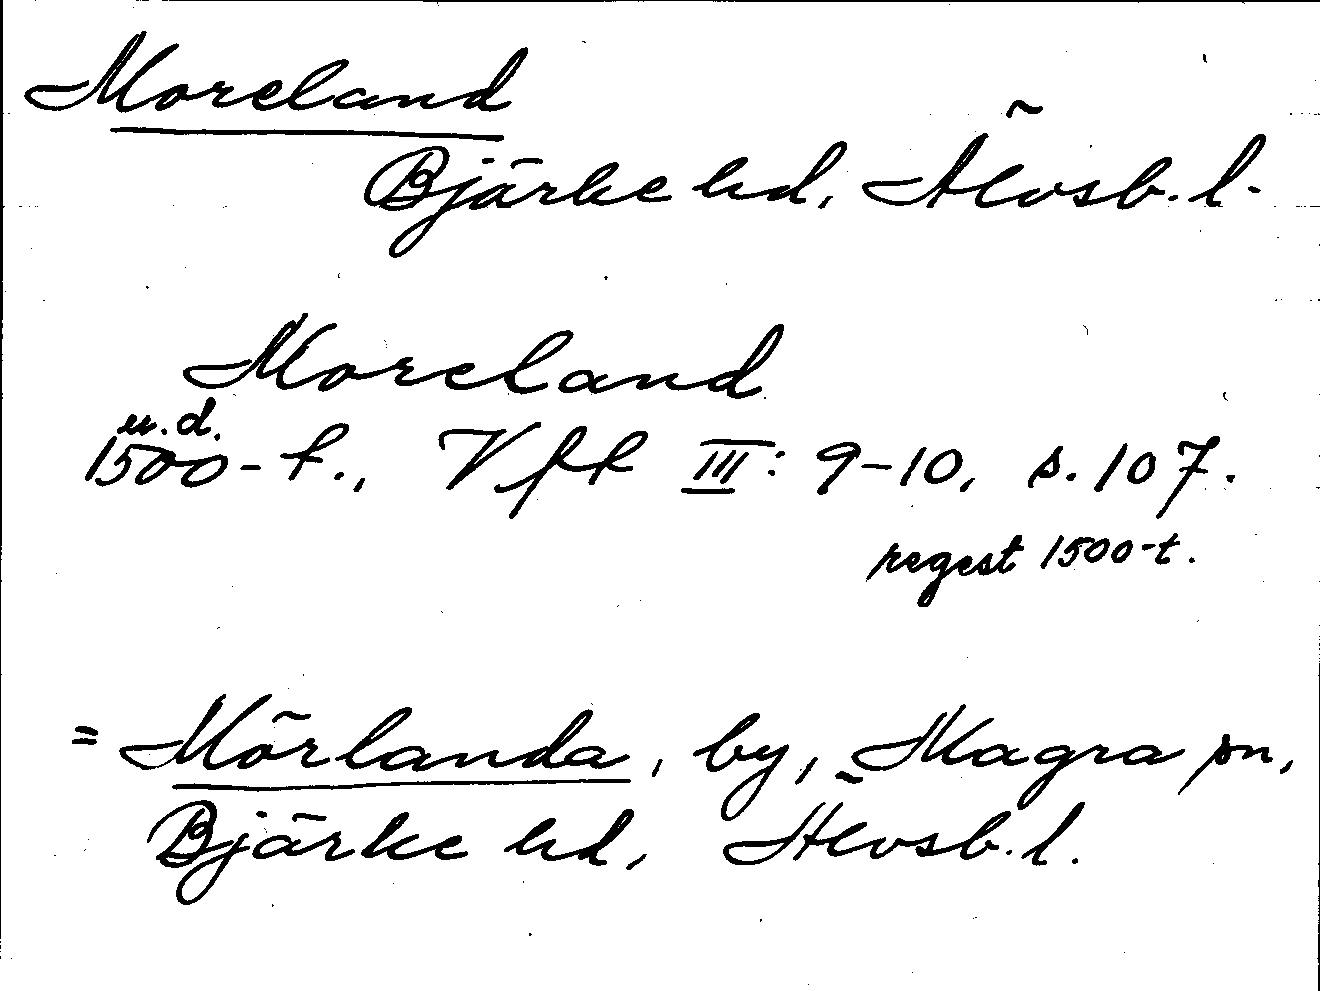 Moreland
Bjärke hd, Älvsb. l.
Moreland
u. d.
1500-t., Vfl III: 9-10, s. 107.
regest 1500-t.
= Mörlanda, by, Magra sn,
Bjärke hd, Älvsb. l.